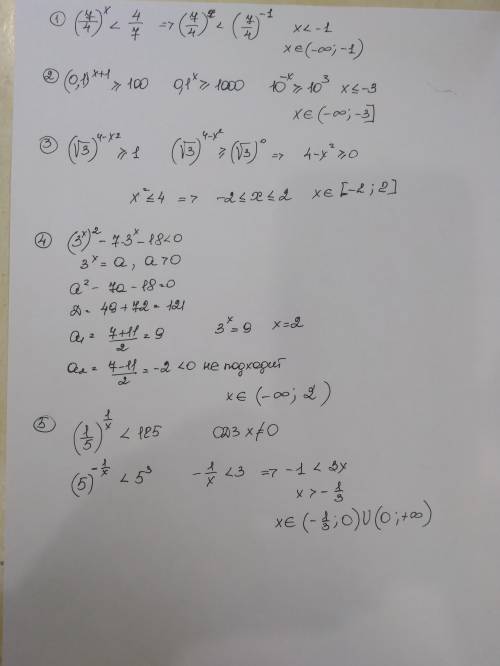 ① (7/4)^x < 4/7 => (7/4)^x < (7/4)^-1 x < -1
x∈(-∞; -1)
② (0,1)^x+1 ≥ 100 0,1^x ≥ 1000 10^-x ≥ 10^3 x ≤ -3
x∈(-∞; -3]
③ (√3)^4-x² ≥ 1 (√3)^4-x² ≥ (√3)^0 => 4-x² ≥ 0
x² ≤ 4 => -2 ≤ x ≤ 2 x∈[-2; 2]
④ (3^x)² - 7·3^x - 18 < 0
3^x = a, a > 0
a² - 7a - 18 = 0
D = 49 + 72 = 121
a₁ = (7+11)/2 = 9 3^x = 9 x = 2
a₂ = (7-11)/2 = -2 < 0 не подходит
x∈(-∞; 2)
⑤ (1/5)^1/x < 125 ОДЗ x≠0
(5)^-1/x < 5³ -1/x < 3 => -1 < 3x
x > -1/3
x∈(-1/3; 0)U(0; +∞)